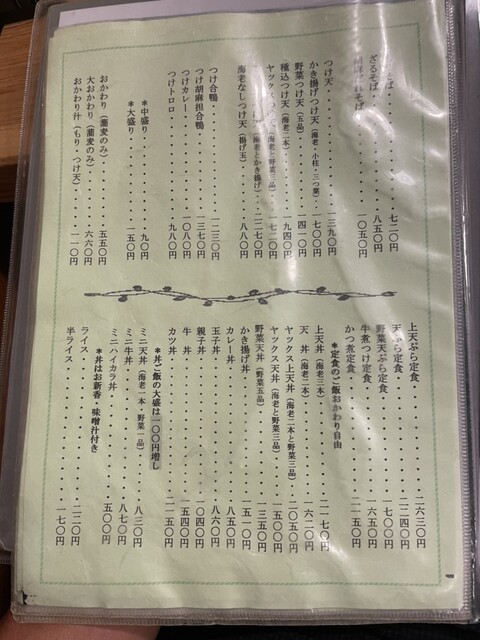 そば・・・・・・・七二〇円
ざるそば・・・・・・・八五〇円
そば・・・・・・・一〇五〇円
つけ天・・・・・・・一三九〇円
かき揚げつけ天（海老・小柱・三つ葉）・一七〇〇円
野菜つけ天（五品）・・・・一四一〇円
種込つけ天（海老二本）・・・一九四〇円
ヤックス（海老と野菜三品）一七二〇円
（海老とかき揚げ）・二二七〇円
海老なしつけ天（揚げ玉）・・・八八〇円
つけ合鴨・・・・・・・一二三〇円
つけ胡麻担合鴨・・・・・一三七〇円
つけカレー・・・・・・一〇八〇円
つけトロロ・・・・・・九八〇円
＊中盛り・・・・・・九〇円
＊大盛り・・・・・・一五〇円
おかわり（蕎麦のみ）・・・・五五〇円
大おかわり（蕎麦のみ）・・・六六〇円
おかわり汁（もり・つけ天）・・・一一〇円
上天ぷら定食・・・・・・二六三〇円
天ぷら定食・・・・・・二二四〇円
野菜天ぷら定食・・・・・一七〇〇円
牛煮つけ定食・・・・・・一六五〇円
かつ煮定食・・・・・・二一五〇円
＊定食のご飯おかわり自由
上天丼（海老三本）・・・・二一七〇円
天丼（海老二本）・・・・一六二〇円
ヤックス上天丼（海老二本と野菜三品）・二〇五〇円
ヤックス天丼（海老と野菜三品）・・一五〇〇円
野菜天丼（野菜五品）・・・・一三五〇円
かき揚げ丼・・・・・・一五一〇円
カレー丼・・・・・・八五〇円
玉子丼・・・・・・・八六〇円
親子丼・・・・・・・一〇四〇円
牛丼・・・・・・・一五四〇円
カツ丼・・・・・・・二一五〇円
＊丼ご飯の大盛は一〇〇円増し
ミニ天丼（海老一本・野菜一品）・八三〇円
ミニ牛丼・・・・・・八七〇円
ミニハイカラ丼・・・・・五〇〇円
＊丼はお新香 味噌汁付き
ライス・・・・・・・二二〇円
半ライス・・・・・・一七〇円